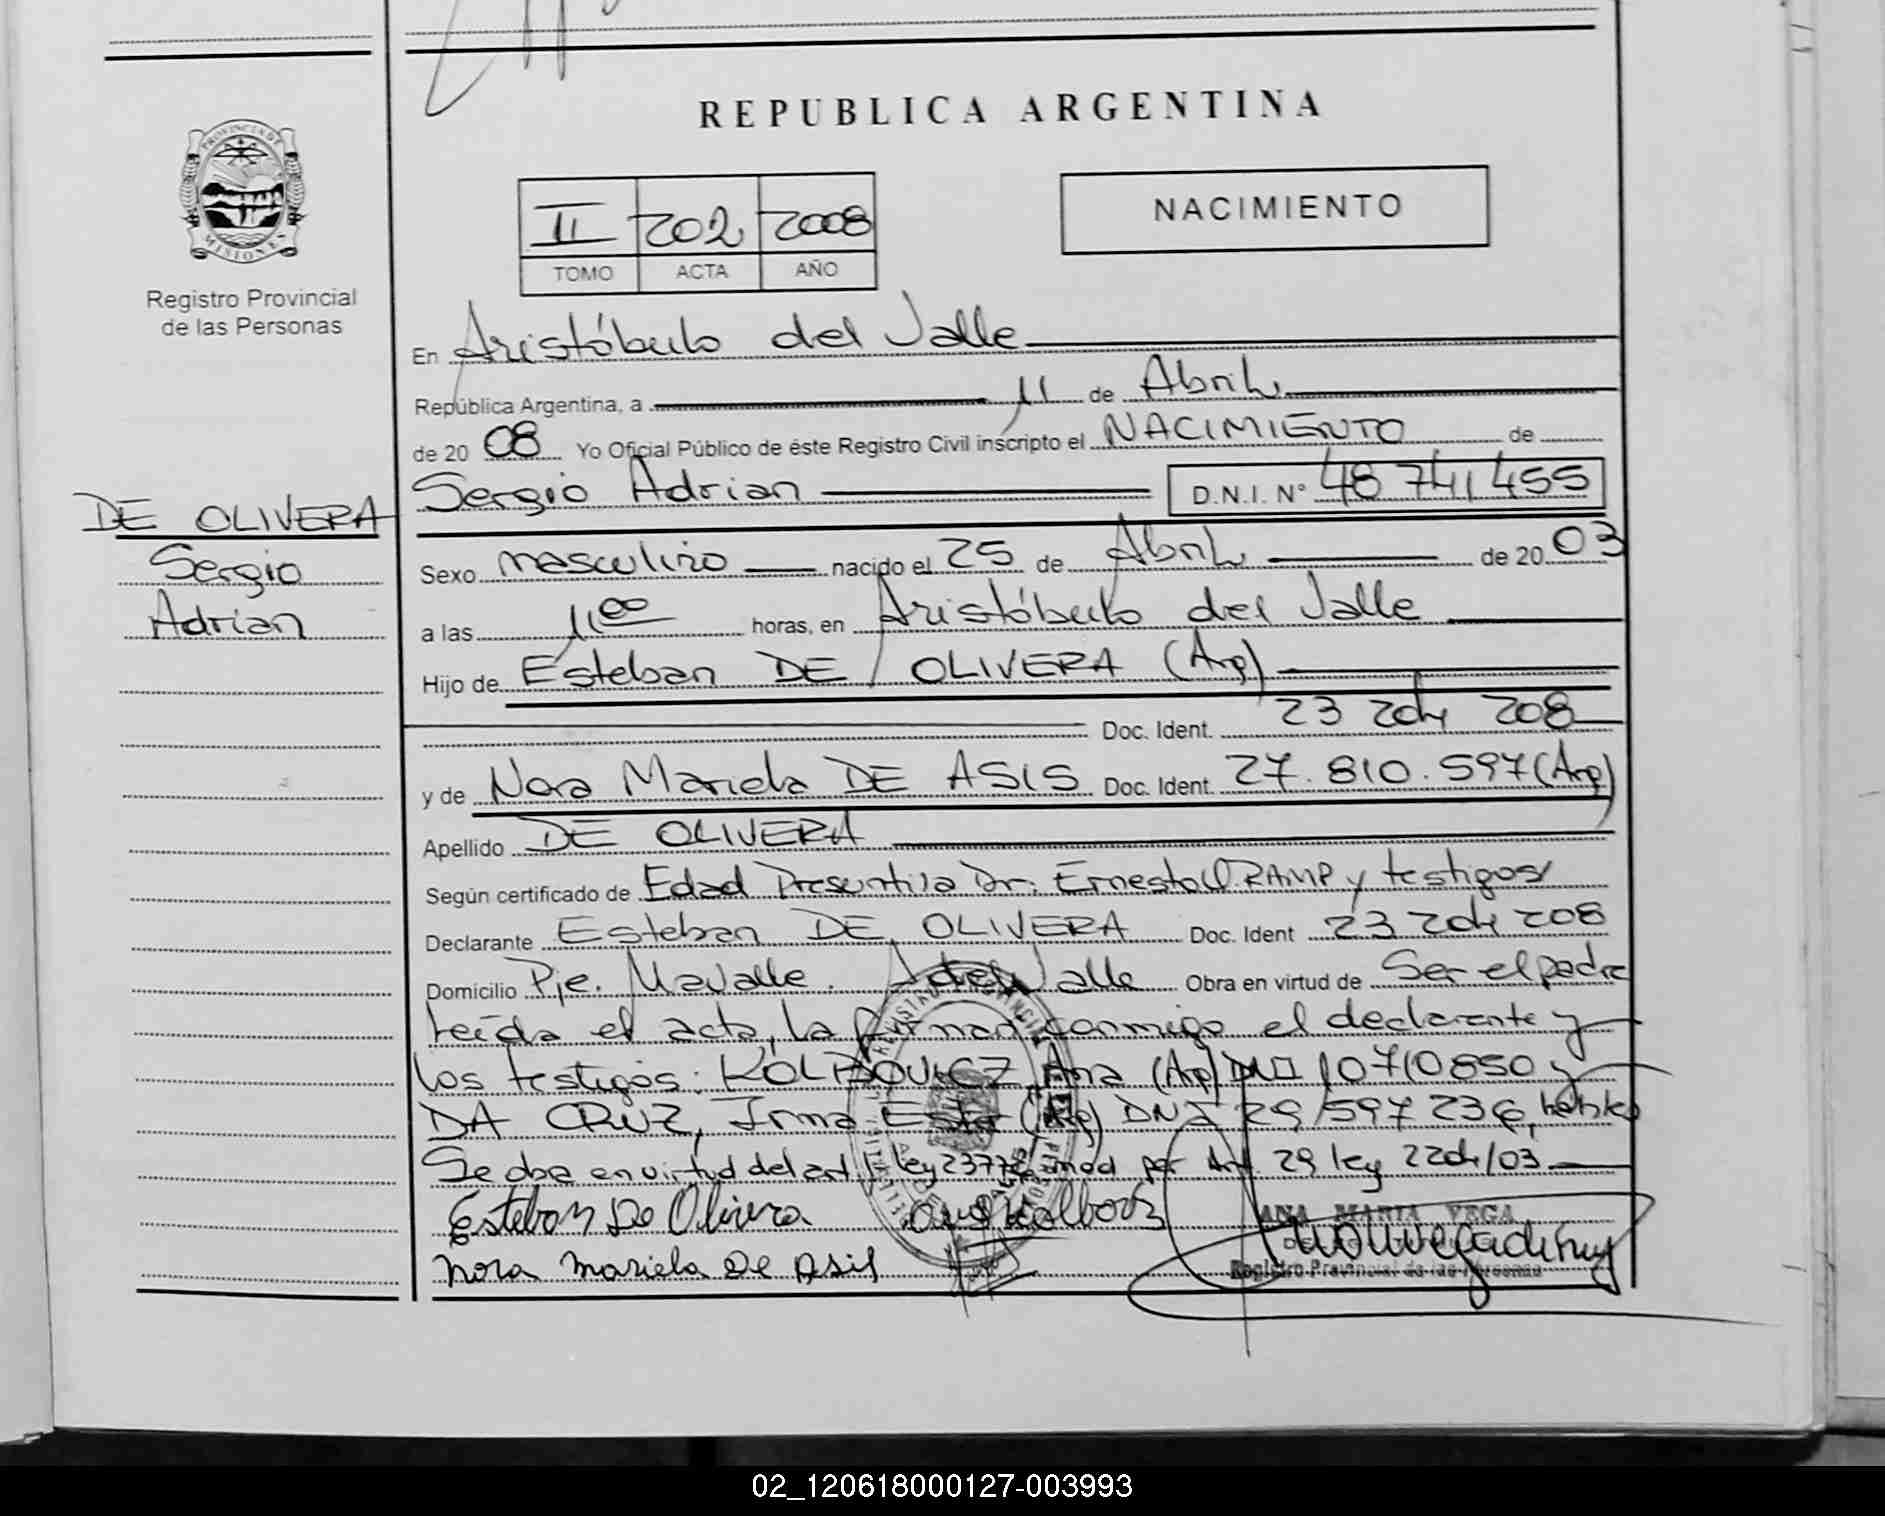 REPUBLICA ARGENTINA
PROVINCIA DE
MISIONES
Registro Provincial
de las Personas
II 202 2008
TOMO ACTA AÑO
NACIMIENTO
En Aristóbulo del Valle
República Argentina, a 11 de Abril
de 20 08 Yo Oficial Público de éste Registro Civil inscripto el NACIMIENTO de
Sergio Adrian D.N.I. N° 48 741 455
DE OLIVERA
Sergio
Adrian
Sexo masculino nacido el 25 de Abril de 20 03
a las 11 00 horas, en Aristóbulo del Valle
Hijo de Esteban DE OLIVERA (Arg)
Doc. Ident. 23 204 208
y de Nora Mariela DE ASIS Doc. Ident. 27.810.597 (Arg)
Apellido DE OLIVERA
Según certificado de Edad Presuntiva Dr. Ernesto O. RAMP y testigos
Declarante Esteban DE OLIVERA Doc. Ident 23 204 208
Domicilio Pje. Mavalle. A del Valle Obra en virtud de Ser el padre
leída el acta, la firman conmigo el declarante y
los testigos: Ana (Arg) DNI 10710850 y
DA CRUZ, Irma (Arg) DNI 29 597 236,
Se obra en virtud del art 1 ley 23776 mod por Art 29 ley 2204/03
Esteban De Olivera
ANA MARIA VEGA
Nora Mariela De Asis
Registro Provincial de las Personas
02_120618000127-003993